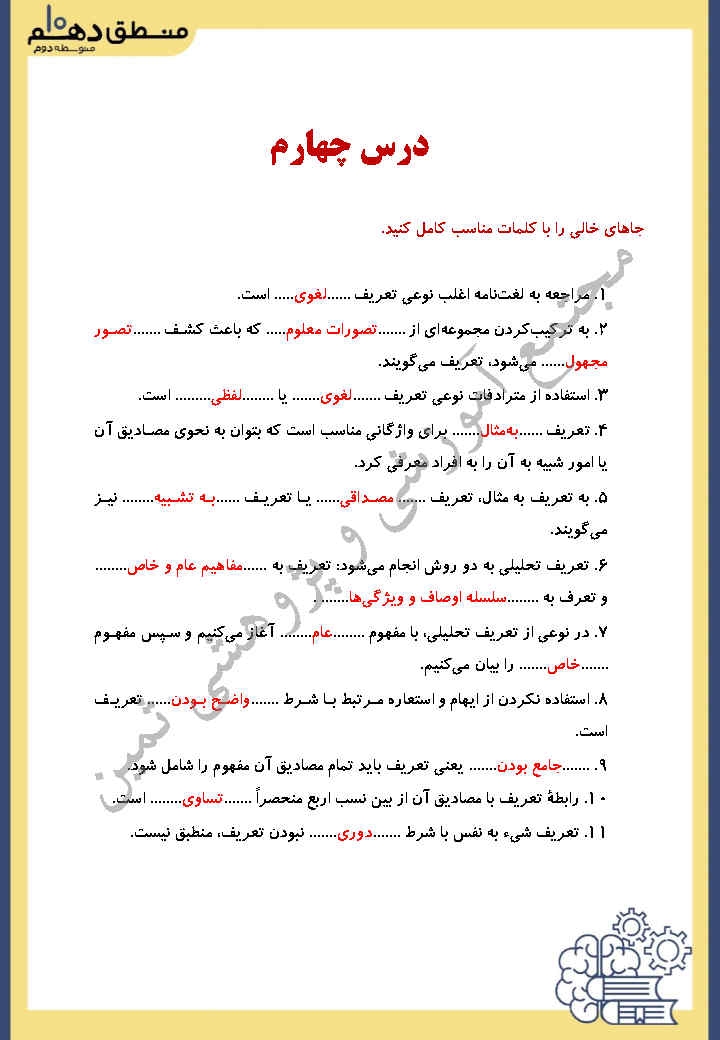 منطق دهم ۱۰
متوسطه دوم
درس چهارم
جاهای خالی را با کلمات مناسب کامل کنید.
۱. مراجعه به لغت‌نامه اغلب نوعی تعریف ......لغوی..... است.
۲. به ترکیب‌کردن مجموعه‌ای از .......تصورات معلوم..... که باعث کشف .......تصور
مجهول...... می‌شود، تعریف می‌گویند.
۳. استفاده از مترادفات نوعی تعریف .......لغوی....... یا ........لفظی......... است.
۴. تعریف ......به‌مثال....... برای واژگانی مناسب است که بتوان به نحوی مصادیق آن
یا امور شبیه به آن را به افراد معرفی کرد.
۵. به تعریف به مثال، تعریف ....... مصداقی...... یا تعریف ......به تشبیه........ نیز
می‌گویند.
۶. تعریف تحلیلی به دو روش انجام می‌شود: تعریف به ......مفاهیم عام و خاص........
و تعرف به ........سلسله اوصاف و ویژگی‌ها....... .
۷. در نوعی از تعریف تحلیلی، با مفهوم ........عام........ آغاز می‌کنیم و سپس مفهوم
.......خاص....... را بیان می‌کنیم.
۸. استفاده نکردن از ایهام و استعاره مرتبط با شرط .......واضح بودن...... تعریف
است.
۹. .......جامع بودن....... یعنی تعریف باید تمام مصادیق آن مفهوم را شامل شود.
۱۰. رابطۀ تعریف با مصادیق آن از بین نسب اربع منحصراً .......تساوی........ است.
۱۱. تعریف شیء به نفس با شرط .......دوری....... نبودن تعریف، منطبق نیست.
مجتمع آموزشی و پژوهشی ثمین